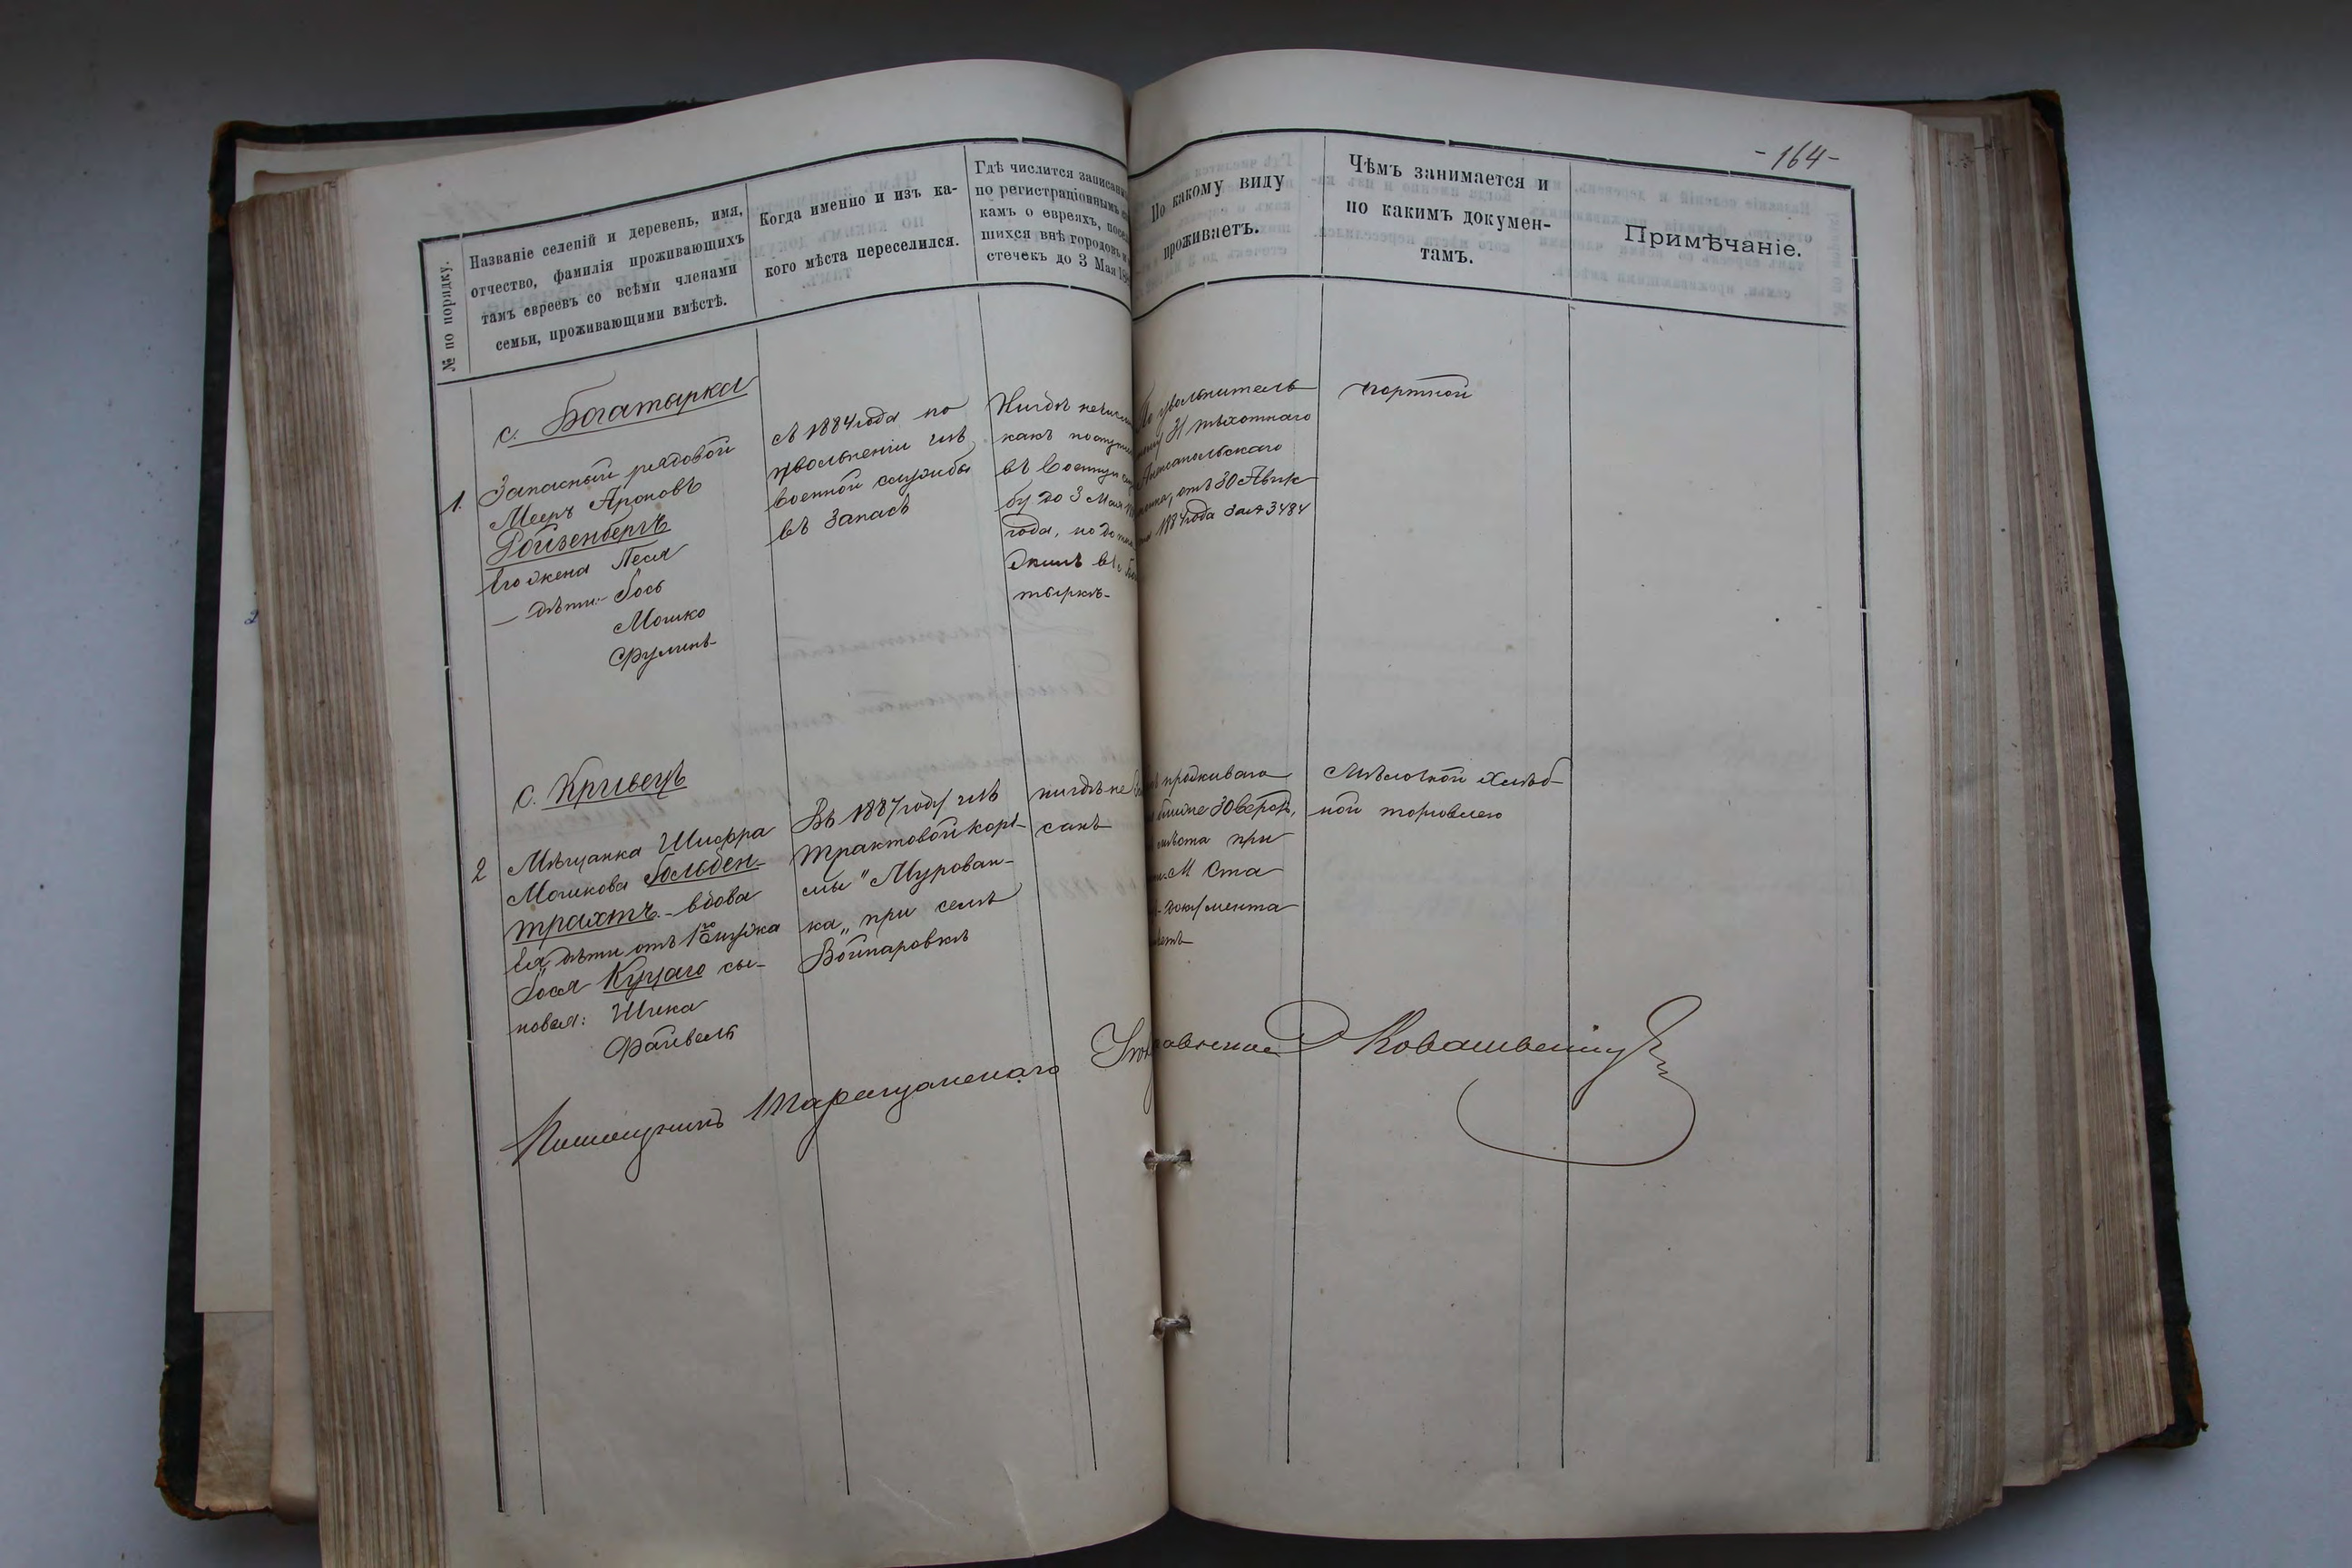 -164-
№ по порядку.
Названіе селеній и деревень, имя,
отчество, фамилія проживающихъ
тамъ евреевъ со всѣми членами
семьи, проживающими вмѣстѣ.
Когда именно и изъ ка-
кого мѣста переселился.
Гдѣ числится
по регистраціоннымъ
камъ о евреяхъ,
шихся внѣ городовъ
стечекъ до 3 Мая
По какому виду
проживаетъ.
Чѣмъ занимается и
по какимъ докумен-
тамъ.
Примѣчаніе.
с. Богатырка
1. Запасный рядовой
Мееръ Ароновъ
Ройзенбергъ
Его жена Песя
дѣти: Бось
Мошко
Фрумень
съ 1884 года по
увольненіи изъ
военной службы
въ запасъ
Нигдѣ
какъ
въ Военную
бу до 3 Мая
года, но до
жилъ въ с.
тыркѣ
31 пѣхотнаго
Алексопольскаго
отъ 30
1884 года за № 3484
портной
с. Кривецъ
2 Мѣщанка Шифра
Мошкова Гольден-
трахтъ - вдова
Ея дѣти отъ 1го мужа
Боси Куцаго сы-
новья: Шика
Файвель
Въ 1887 году изъ
трактовой корч-
мы "Мурован-
ка" при селѣ
Войнаровкѣ
нигдѣ не
санъ
ближе 30 верстъ,
при
М Ста
документа
мѣлочной хлѣб-
ной торговлею
Помощникъ Таращанскаго Исправника Ковашвеницъ